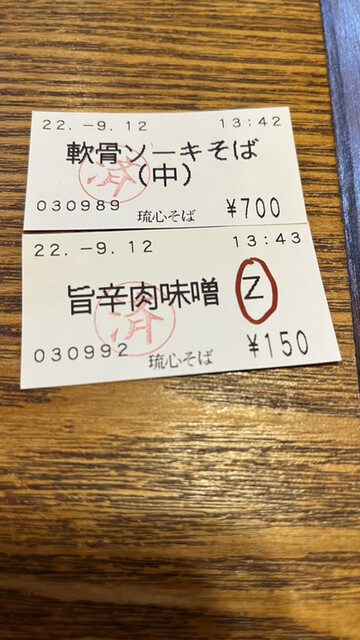 22.-9.12 13:42
軟骨ソーキそば
(中)
済
030989 琉心そば ¥700
22.-9.12 13:43
旨辛肉味噌 Z
済
030992 琉心そば ¥150